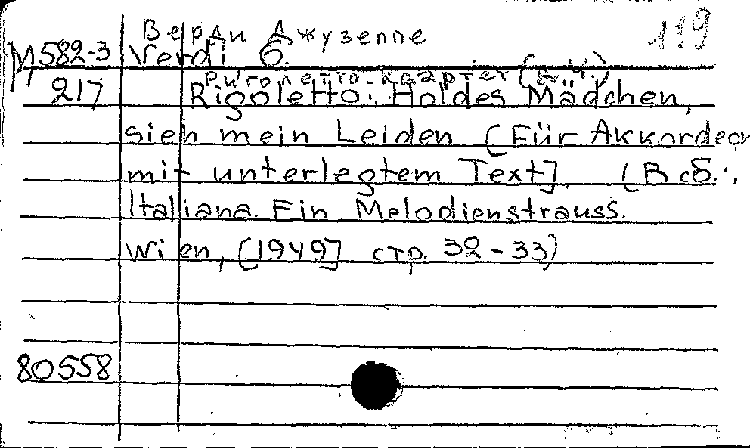 Верди Джузеппе
119
М582-3 Verdi G.
Риголетто. Квартет
217 Rigoletto: Holdes Mädchen,
sieh mein Leiden. [Für Akkordeon
mit unterlegtem Text]. (В сб.:
Italiana. Ein Melodienstrauss.
Wien, [1949] стр. 32-33)
80558